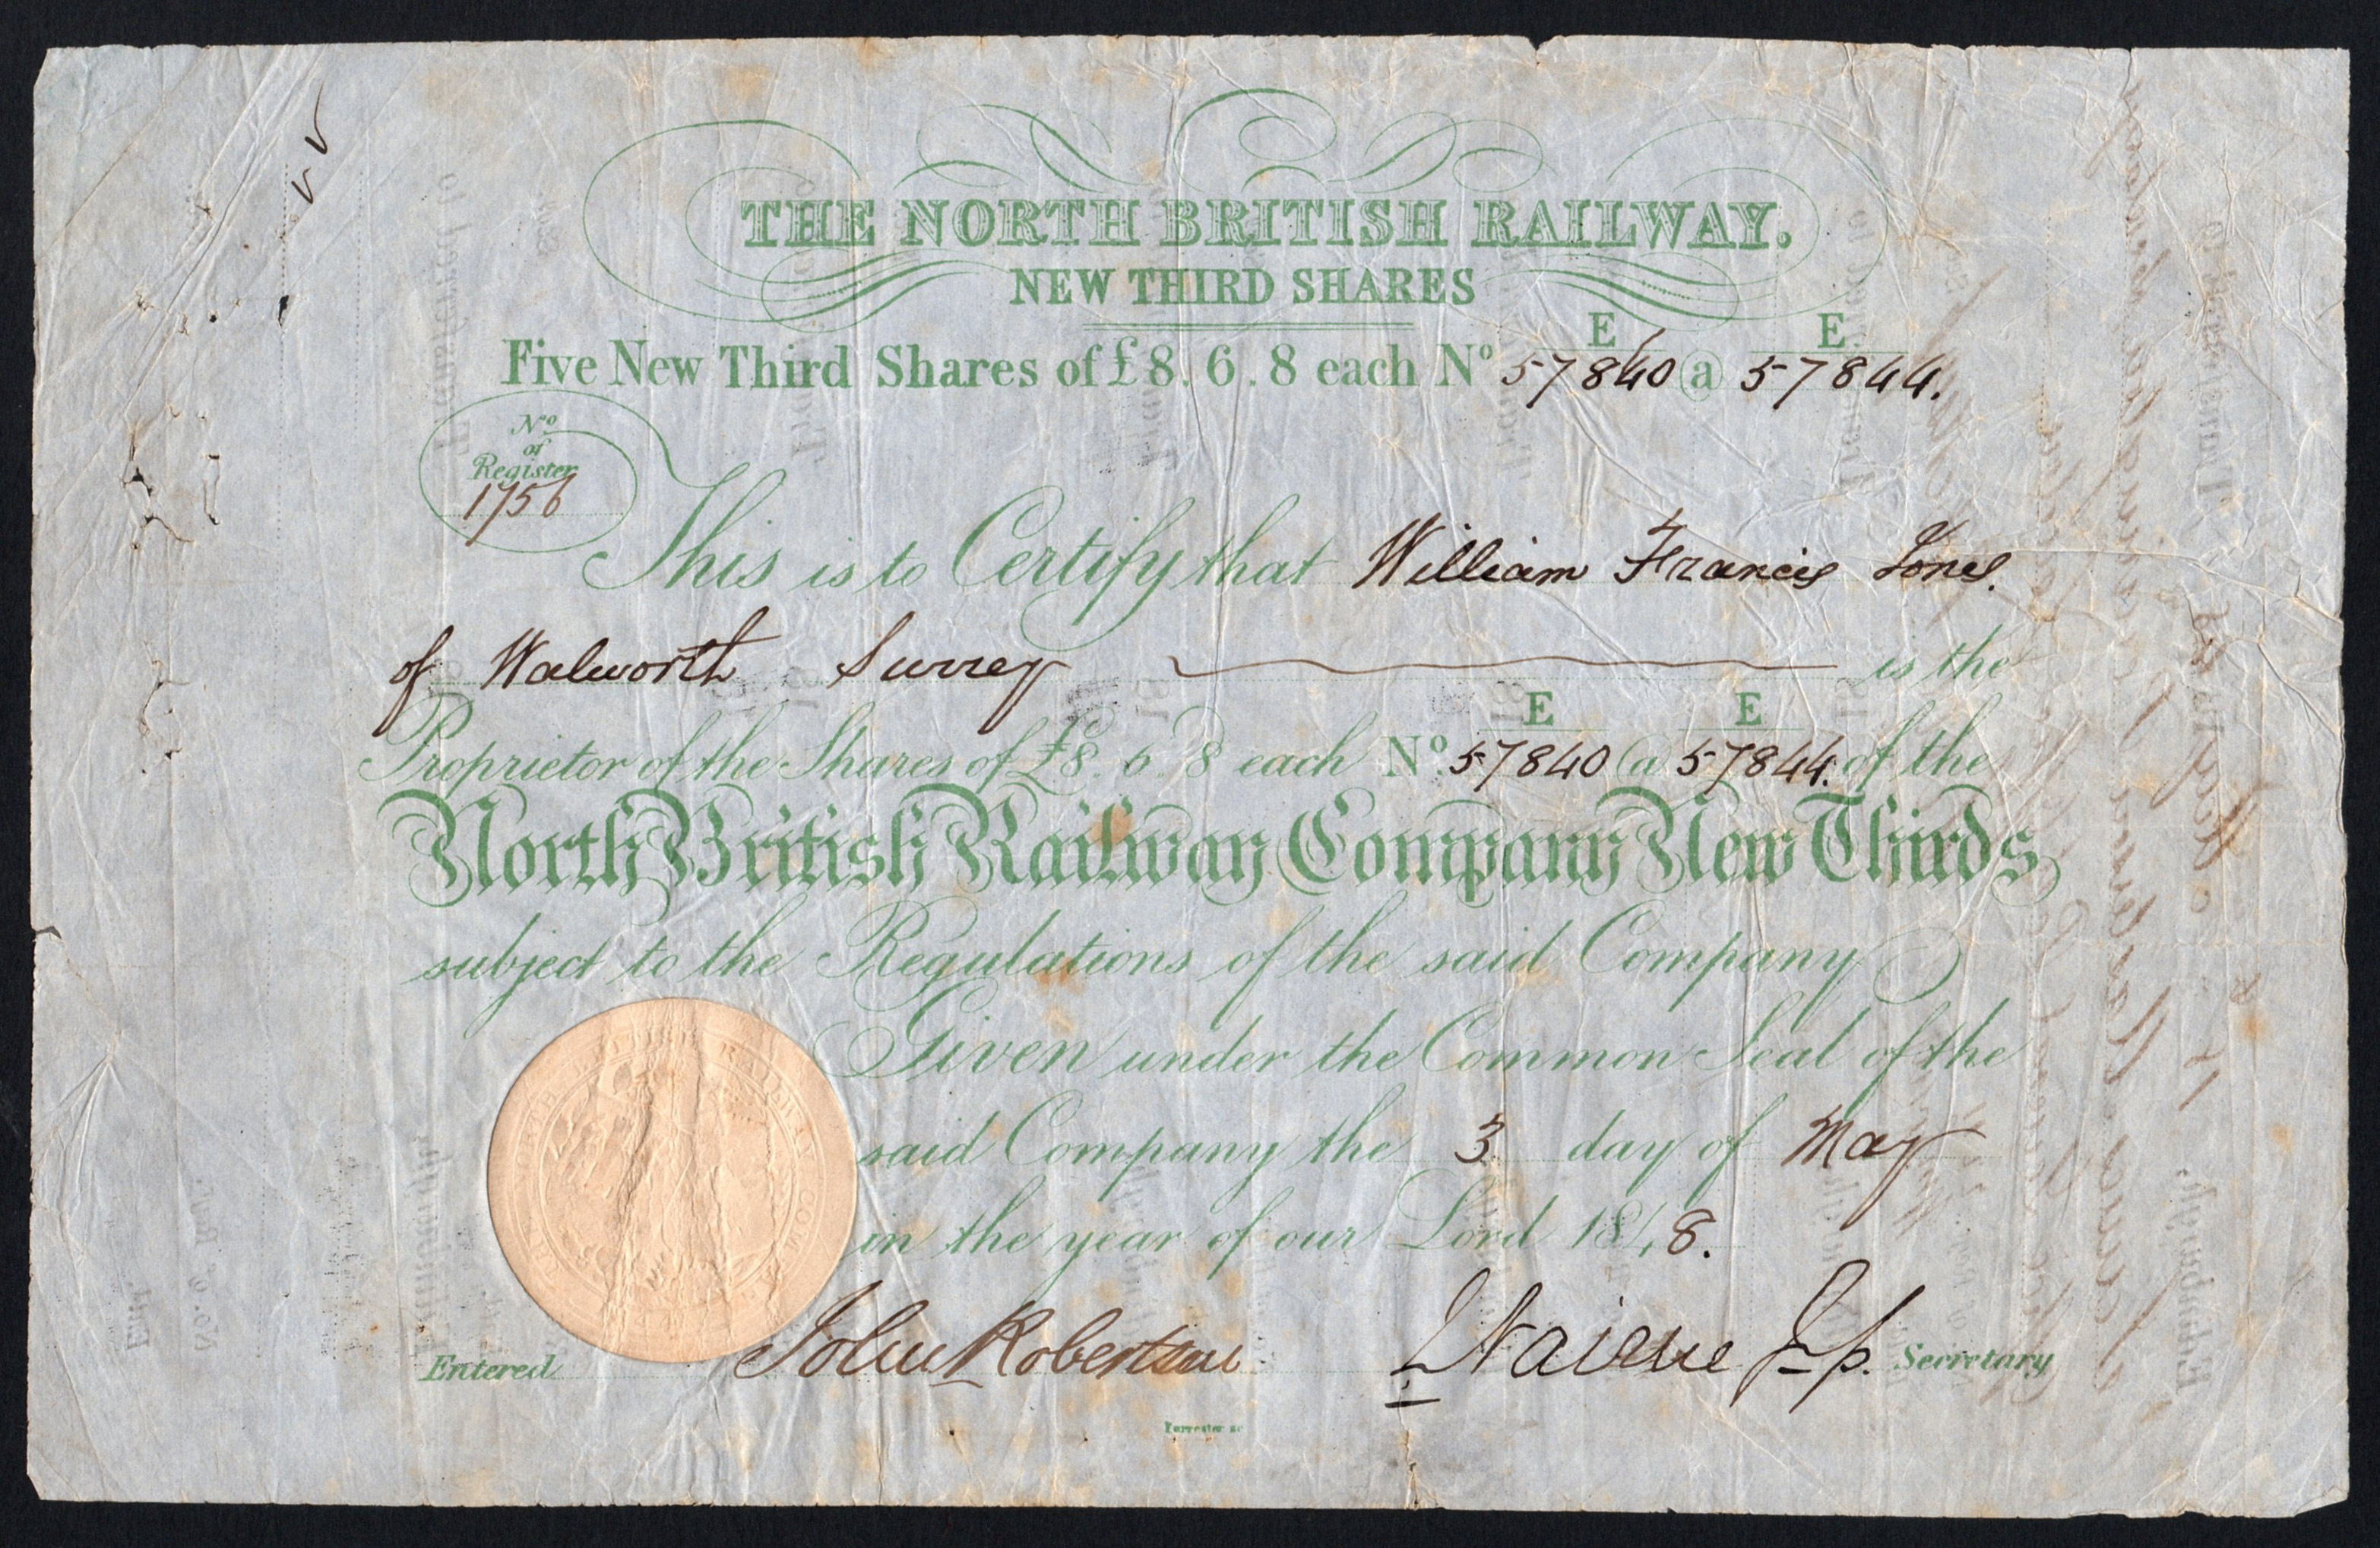 THE NORTH BRITISH RAILWAY.
NEW THIRD SHARES
Five New Third Shares of £8.6.8 each Nº E 57840 @ E 57844.
Nº
of
Register
1756
This is to Certify that William Francis Jones.
of Walworth Surrey is the
Proprietor of the Shares of £8.6.8 each Nº E 57840 @ E 57844. of the
North British Railway Company New Thirds
subject to the Regulations of the said Company
Given under the Common Seal of the
said Company the 3 day of May
in the year of our Lord 1848.
Entered John Robertson Secretary
Forrester sc